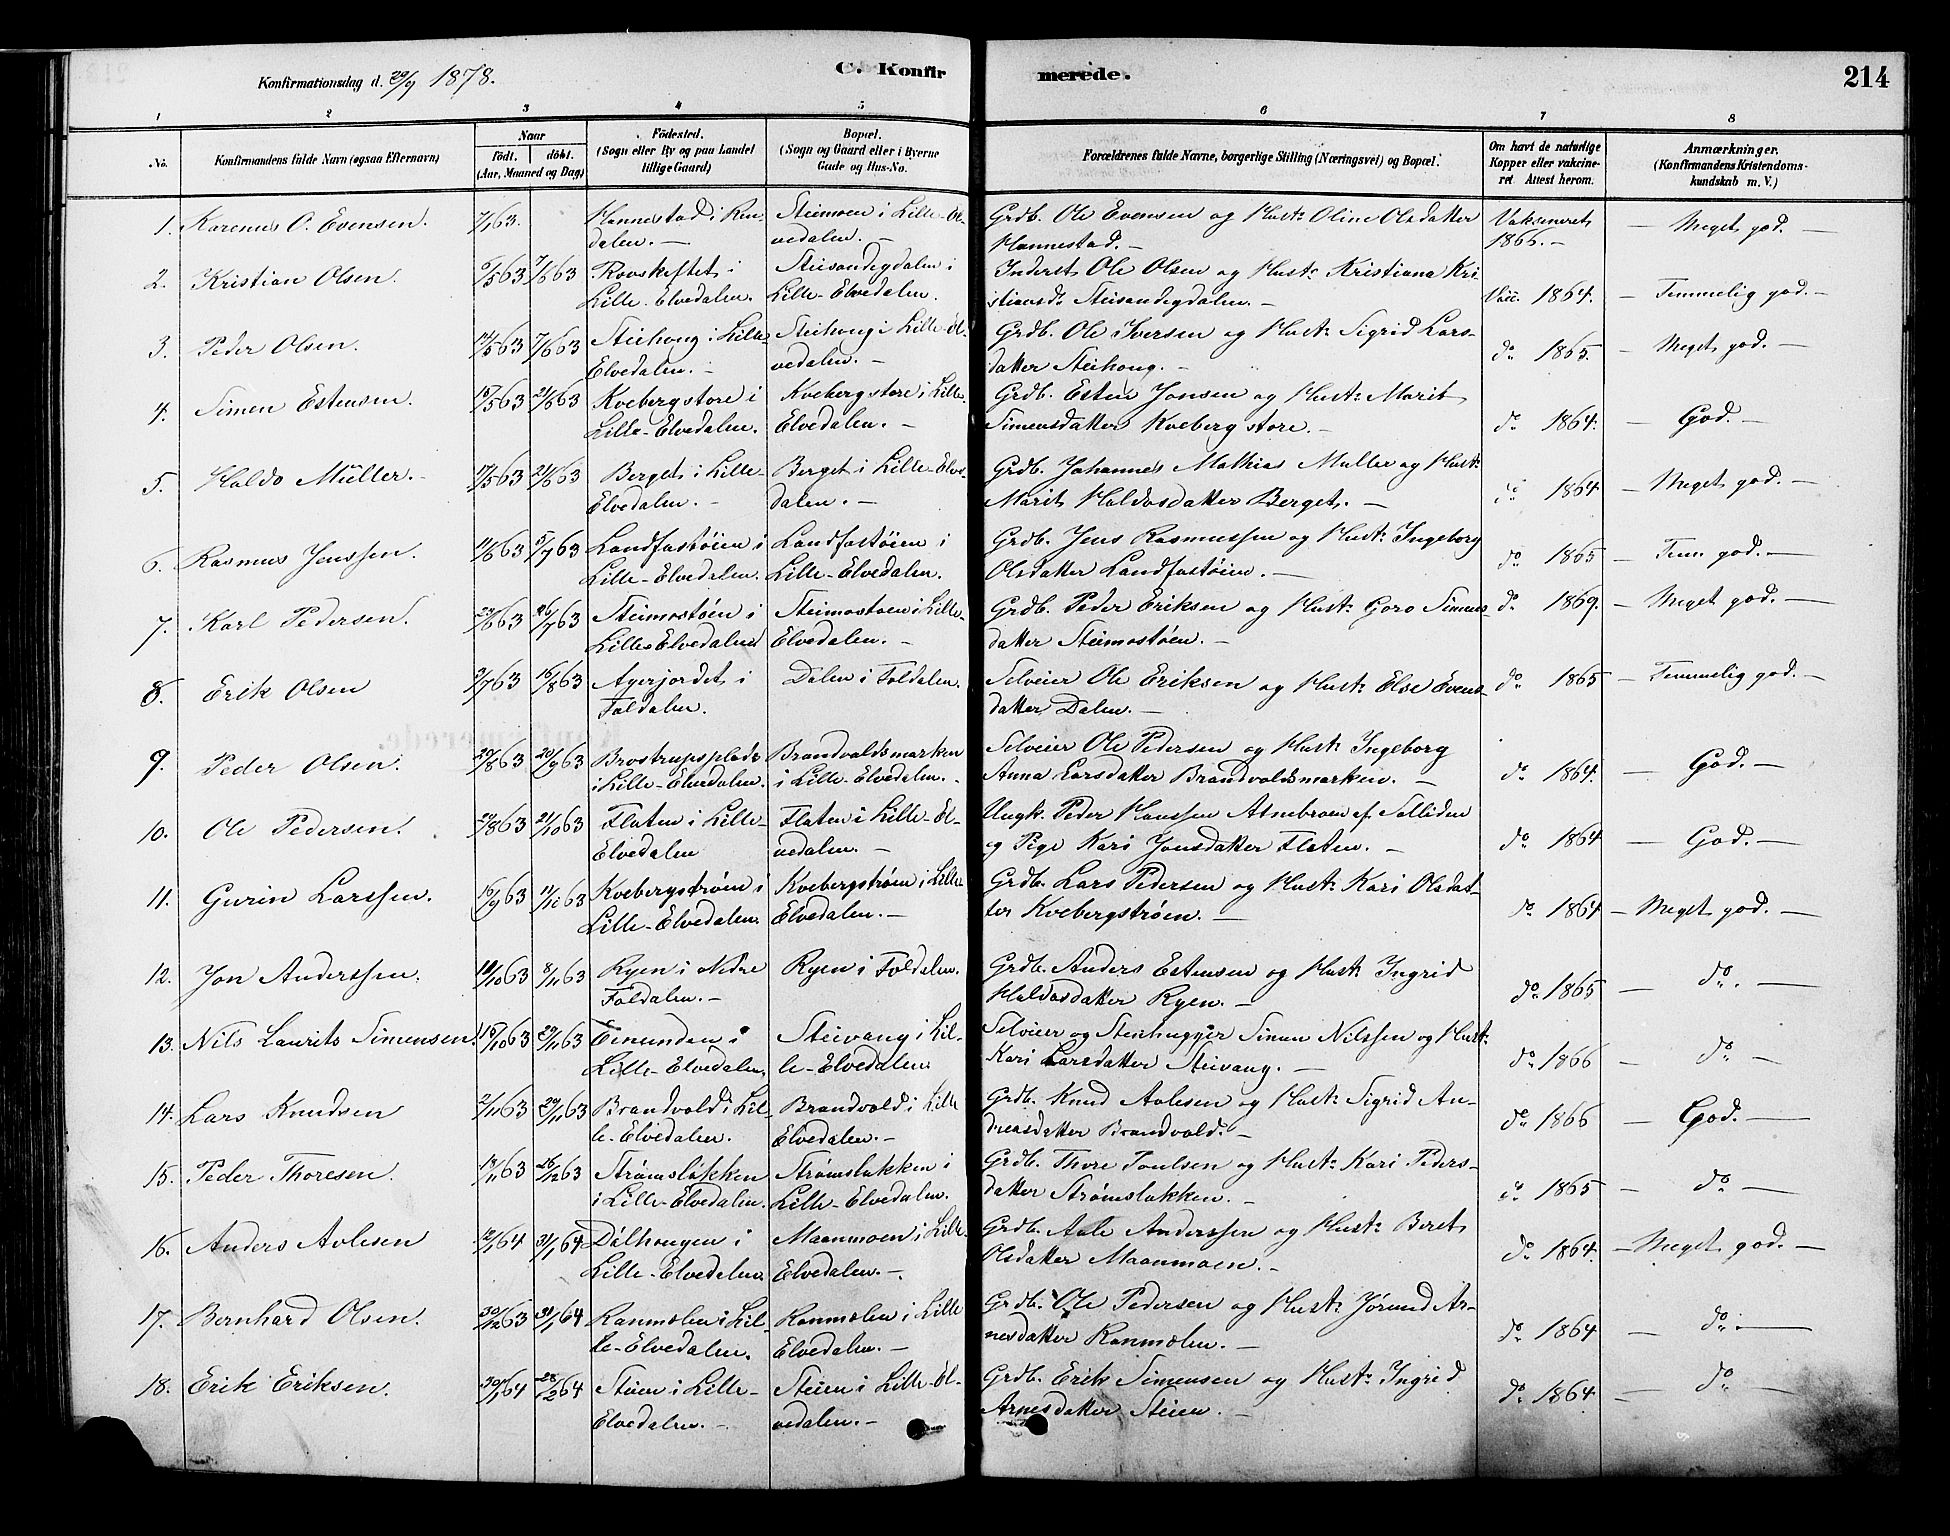 Konfirmationsdag d. 29/9 1878.
C. Konfirmerede.
214
1 2 3 4 5 6 7 8
No.
Konfirmandens fulde Navn (ogsaa Efternavn)
Naar
födt. döbt.
(Aar, Maaned og Dag)
Födested.
(Sogn eller By og paa Landet
tillige Gaard)
Bopæl.
(Sogn og Gaard eller i Byerne
Gade og Hus-No.
Forældrenes fulde Navne, borgerlige Stilling (Næringsvei) og Bopæl.
Om havt de naturlige
Kopper eller vakcine-
ret Attest herom.
Anmærkninger.
(Konfirmandens Kristendoms-
kundskab m. V.)
1. Karenus O. Evensen. 7/1 63. Hannestad i Ren-
dalen. —
Steimoen i Lille-El-
vedalen. —
Grdb. Ole Evensen og Hust: Oline Olsdatter
Hannestad. —
Vaksineret
1866. —
— Meget god. —
2. Kristian Olsen. 6/5 63 7/6 63 i
Lille-Elvedalen.
Steisandegdalen i
Lille-Elvedalen.
Inderst Ole Olsen og Hust: Kristiana Kri-
stiansdr Steisandegdalen. —
1864. — Temmelig god. —
3. Peder Olsen. 14/5 63 7/6 63 Steihoug i Lille-
Elvedalen. —
Steihoug i Lille-El-
vedalen. —
Grdb. Ole Iversen og Hust: Sigrid Lars-
datter Steihoug. —
do 1865. — Meget god. —
4. Simen Estensen. 15/5 63 21/6 63 Kvebergstore i
Lille-Elvedalen.
Kvebergstore i Lille-
Elvedalen. —
Grdb. Esten Jonsen og Hust: Marit
Simensdatter Kvebergstore. —
do 1864. — God. —
5. Haldo Müller. 17/5 63 21/6 63 Berget i Lille-
Elvedalen. —
Berget i Lille-Elve-
dalen. —
Grdb. Johannes Mathias Muller og Hust:
Marit Haldosdatter Berget. —
do 1864. — Meget god. —
6. Rasmus Jenssen. 11/6 63 5/7 63 Landfastöien i
Lille-Elvedalen.
Landfastöien i
Lille-Elvedalen.
Grdb. Jens Rasmussen og Hust: Ingeborg
Olsdatter Landfastöien. —
do 1865 — Tem. god. —
7. Karl Pedersen. 24/6 63 26/7 63 Steimostöen i
Lille-Elvedalen
Steimostoen i Lille-
Elvedalen. —
Grdb. Peder Eriksen og Hust: Goro Simens-
datter Steimostöen. —
do 1869. — Meget god. —
8. Erik Olsen 9/7 63 16/8 63 Agerjordet i
Foldalen.
Dalen i Foldalen.
Selveier Ole Eriksen og Hust: Else Evens-
datter Dalen. —
do 1865 — Temmelig god. —
9. Peder Olsen. 20/8 63 20/9 63 Brostrupsplads
i Lille-Elvedalen.
Brandvoldsmarken
i Lille-Elvedalen. —
Selveier Ole Pedersen og Hust: Ingeborg
Anna Larsdatter Brandvoldsmarken. —
do 1864. — God. —
10. Ole Pedersen. 24/8 63 24/10 63 Flaten i Lille-
Elvedalen
Flaten i Lille-El-
vedalen. —
Ungk. Peder Hanssen Atnebroen af Solliden
og Pige Kari Jonsdatter Flaten. —
do 1864 — God. —
11. Gurin Larssen. 16/9 63 11/10 63 Kvebergströen i
Lille-Elvedalen.
Kvebergströen i Lille-
Elvedalen. —
Grdb. Lars Pedersen og Hust: Kari Olsdat-
ter Kvebergströen. —
do 1864 — Meget god. —
12. Jon Anderssen. 10/10 63 8/11 63 Ryen i Nedre
Foldalen. —
Ryen i Foldalen.
Grdb. Anders Estensen og Hust: Ingrid
Haldosdatter Ryen. —
do 1865 — do. —
13. Nils Laurits Simensen. 15/10 63 29/11 63 Emunden i
Lille-Elvedalen.
Steivang i Lil-
le-Elvedalen.
Selveier og Stenhugger Simen Nilssen og Hust:
Kari Larsdatter Steivang. —
do 1866 — do —
14. Lars Knudsen 2/11 63 29/11 63 Brandvold i Lil-
le-Elvedalen.
Brandvold i Lille
Elvedalen. —
Grdb. Knud Aolesen og Hust: Sigrid An-
dreasdatter Brandvold. —
do 1866 — God. —
15. Peder Thoresen. 13/11 63 26/12 63 Strömsløkken
i Lille-Elvedalen.
Strömsløkken i
Lille-Elvedalen.
Grdb. Thore Poulsen og Hust: Kari Peders-
datter Strömsløkken. —
do 1865 — do —
16. Anders Aolesen 12/1 64 31/1 64 Dølhougen i
Lille-Elvedalen.
Maanmoen i Lille-
Elvedalen. —
Grdb. Aole Anderssen og Hust: Beret
Olsdatter Maanmoen. —
do 1864. — Meget god. —
17. Bernhard Olsen. 30/12 63 31/1 64 Ranmølen i Lil-
le-Elvedalen.
Ranmølen i Lille
Elvedalen. —
Grdb. Ole Pedersen og Hust: Jörund Ar-
nesdatter Ranmølen. —
do 1864 — do. —
18. Erik Eriksen. 30/1 64 28/2 64 Steien i Lille-
Elvedalen. —
Steien i Lille-El-
vedalen. —
Grdb. Erik Simensen og Hust: Ingrid
Arnesdatter Steien. —
do 1864. — do —